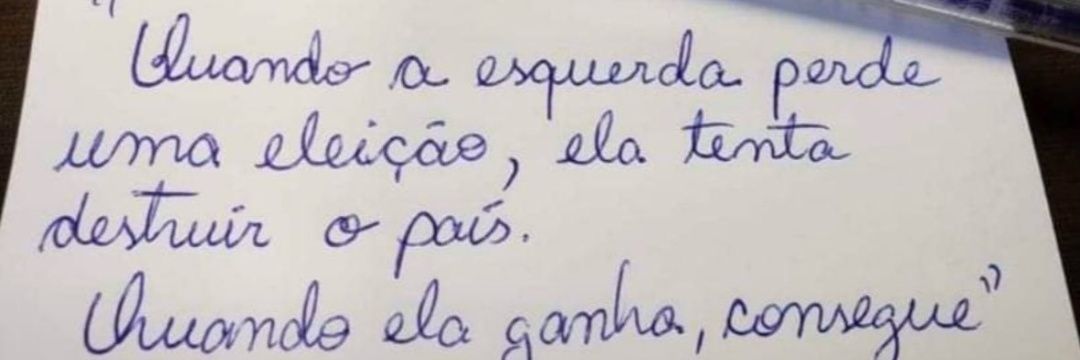 "Quando a esquerda perde
uma eleição, ela tenta
destruir o país.
Quando ela ganha, consegue"